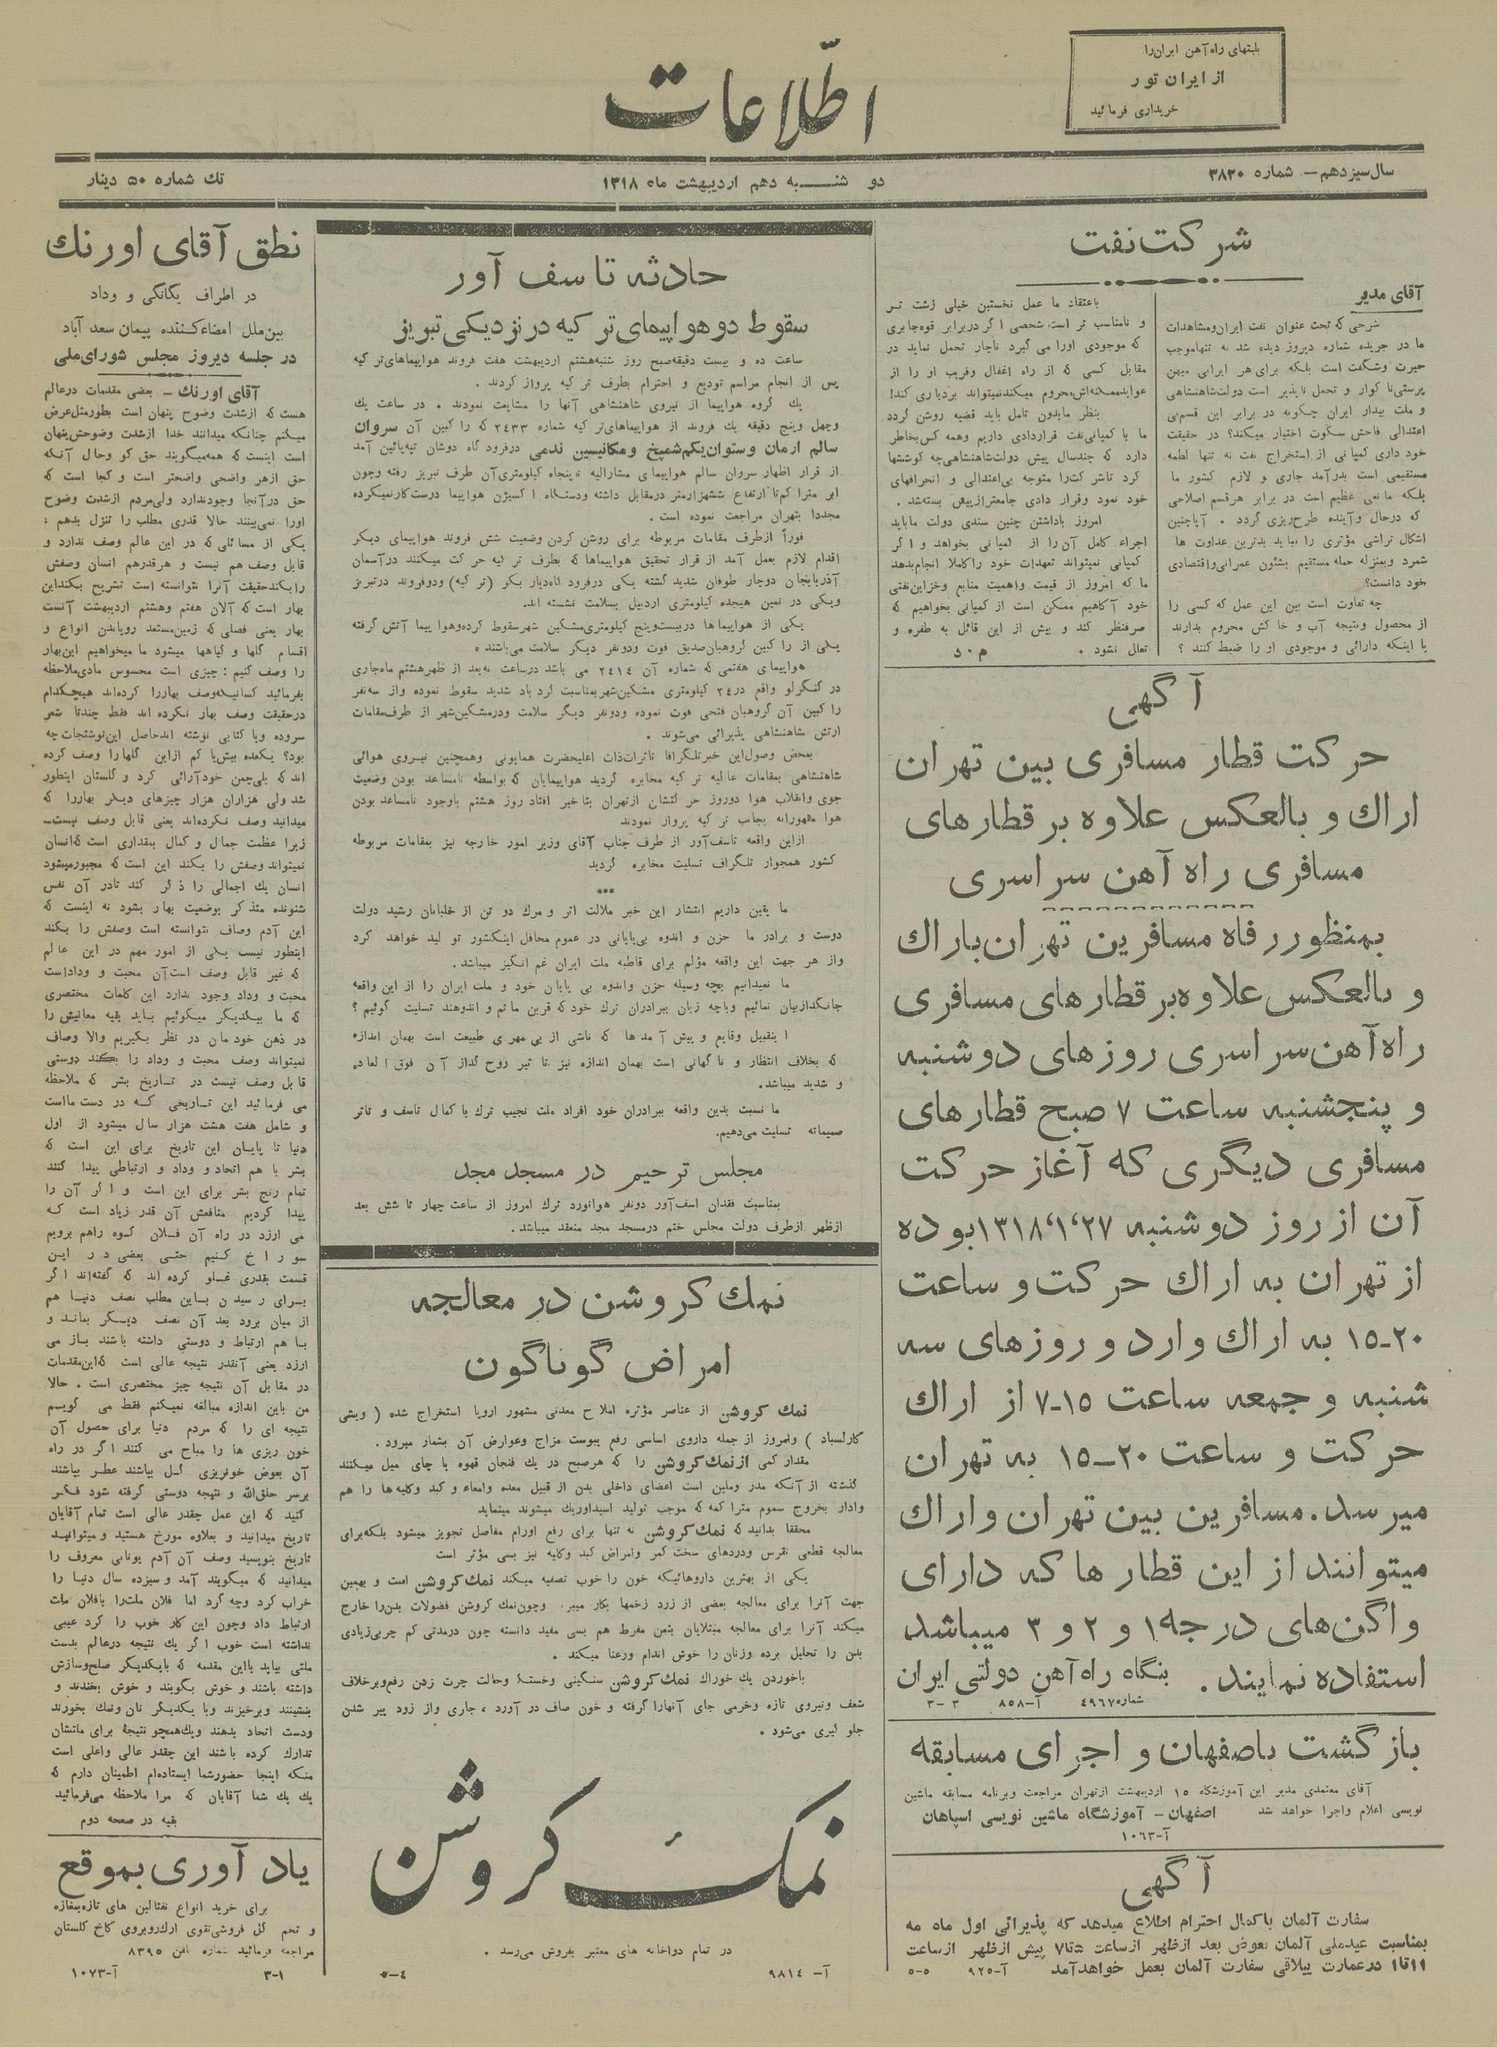 بلیتهای راه آهن ایران را
از ایران تور
خریداری فرمائید
اطلاعات
سال سیزدهم – شماره ۳۸۲۰
دو شنبه دهم اردیبهشت ماه ۱۳۱۸
تك شماره ۵۰ دینار
شركت نفت
آقای مدیر
شرحی که تحت عنوان نفت ایران و مشاهدات
ما در جریده شماره دیروز دیده شد نه تنها موجب
حیرت و شگفت است بلکه برای هر ایرانی میهن
پرستی نا گوار و تحمل ناپذیر است دولت شاهنشاهی
و ملت بیدار ایران چگونه در برابر این قسم بی
اعتدالی فاحش سکوت اختیار میکند؟ در حقیقت
خود داری کمپانی از استخراج نفت نه تنها لطمه
مستقیمی است بدرآمد جاری و لازم کشور ما
بلکه مانعی عظیم است در برابر هر قسم اصلاحی
که در حال و آینده طرح ریزی گردد . آیا چنین
اشکال تراشی مؤثری را نباید بدترین عداوت ها
شمرد و بمنزله حمله مستقیم بشئون عمرانی و اقتصادی
خود دانست؟
چه تفاوت است بین این عمل که کسی را
از محصول و نتیجه آب و خاکش محروم بدارند
با اینکه دارائی و موجودی او را ضبط کنند ؟
باعتقاد ما عمل نخستین خیلی زشت تر
و نامناسب تر است، شخصی اگر در برابر قوه جابری
که موجودی او را می گیرد ناچار تحمل نماید در
مقابل کسی که از راه اغفال و فریب او را از
عواید مسکنه اش محروم میکند نمیتواند بردباری کند!
بنظر ما بدون تامل باید قضیه روشن گردد
ما با کمپانی نفت قراردادی داریم و همه کس بخاطر
دارد که چند سال پیش دولت شاهنشاهی چه کوششها
کرد تا شرکت را متوجه بی اعتدالی و انحرافهای
خود نمود و قرار دادی جامعتر از پیش بسته شد .
امروز با داشتن چنین سندی دولت ما باید
اجراء کامل آن را از کمپانی بخواهد و اگر
کمپانی نمیتواند تعهدات خود را کاملا انجام بدهد
ما که امروز از قیمت و اهمیت منابع و خزاین نفتی
خود آگاهیم ممکن است از کمپانی بخواهیم که
صرفنظر کند و بیش از این قائل به طفره و
تعلل نشود . م ۵۰
آگهی
حرکت قطار مسافری بین تهران
اراك و بالعكس علاوه بر قطارهای
مسافری راه آهن سراسری
بمنظور رفاه مسافرین تهران باراك
و بالعكس علاوه بر قطارهای مسافری
راه آهن سراسری روزهای دوشنبه
و پنجشنبه ساعت ۷ صبح قطارهای
مسافری دیگری که آغاز حرکت
آن از روز دوشنبه ۱۳۱۸٬۱٬۲۷ بوده
از تهران به اراك حركت و ساعت
۱۵-۲۰ به اراك وارد و روزهای سه
شنبه و جمعه ساعت ۷-۱۵ از اراك
حركت و ساعت ۱۵-۲۰ به تهران
میرسد . مسافرین بین تهران و اراك
میتوانند از این قطار ها که دارای
واگن‌های درجه ۱ و ۲ و ۳ میباشد
استفاده نمایند . بنگاه راه آهن دولتی ایران
شماره ۴۹۶۷ آ-۸۵۸ ۳-۳
بازگشت باصفهان و اجرای مسابقه
آقای معتمدی مدیر این آموزشگاه ۱۵ اردیبهشت از تهران مراجعت و برنامه مسابقه ماشین
نویسی اعلام و اجرا خواهد شد اصفهان – آموزشگاه ماشین نویسی اسپاهان
آ-۱۰۶۳
آگهی
سفارت آلمان با کمال احترام اطلاع میدهد که پذیرائی اول ماه مه
بمناسبت عید ملی آلمان بعوض بعد از ظهر از ساعت ۵ تا ۷ پیش از ظهر از ساعت
۱۱ تا ۱ در عمارت ییلاقی سفارت آلمان بعمل خواهد آمد آ-۹۲۵ ۵-۵
حادثه تاسف آور
سقوط دو هواپیمای ترکیه در نزدیکی تبریز
ساعت ده و بیست دقیقه صبح روز شنبه هشتم اردیبهشت هفت فروند هواپیماهای ترکیه
پس از انجام مراسم تودیع و احترام بطرف ترکیه پرواز کردند .
یك گروه هواپیما از نیروی شاهنشاهی آنها را مشایعت نمودند . در ساعت یك
و چهل و پنج دقیقه یك فروند از هواپیماهای ترکیه شماره ۲۴۳۳ که راکبین آن سروان
سالم ارمان و ستوان یکم شمیخ و مکانیسین ندمی در فرودگاه دوشان تپه پائین آمد
از قرار اظهار سروان سالم هواپیمای مشارالیه تا پنجاه کیلومتری آن طرف تبریز رفته و چون
ابر متراکم تا ارتفاع ششهزار متر در مقابل داشته و دستگاه اکسیژن هواپیما درست کار نمیکرده
مجددا بتهران مراجعت نموده است .
فوراً از طرف مقامات مربوطه برای روشن کردن وضعیت شش فروند هواپیمای دیگر
اقدام لازم بعمل آمد از قرار تحقیق هواپیماها که بطرف ترکیه حرکت میکنند در آسمان
آذربایجان دوچار طوفان شدید گشته یکی در فرودگاه دیار بکر (ترکیه) و دو فروند در تبریز
و یکی در نمین هیجده کیلومتری اردبیل بسلامت نشسته اند.
یکی از هواپیماها در بیست و پنج کیلومتری مشکین شهر سقوط کرده و هواپیما آتش گرفته
یکی از راکبین گروهبان صدیق فوت و دو نفر دیگر سلامت می‌باشند .
هواپیمای هفتمی که شماره آن ۲۴۱۴ می باشد در ساعت نه بعد از ظهر هشتم ماه جاری
در کنگرلو واقع در ۲۴ کیلومتری مشکین شهر بمناسبت گرد باد شدید سقوط نموده و از سه نفر
راکبین آن گروهبان فتحی فوت نموده و دو نفر دیگر سلامت و در مشکین شهر از طرف مقامات
ارتش شاهنشاهی پذیرائی می‌شوند .
بمحض وصول این خبر تلگرافا تاثرات ذات اعلیحضرت همایونی و همچنین نیروی هوائی
شاهنشاهی بمقامات عالیه ترکیه مخابره گردید هواپیمایان که بواسطه نامساعد بودن وضعیت
جوی و انقلاب هوا دو روز حرکتشان از تهران بتاخیر افتاد روز هشتم باوجود نامساعد بودن
هوا مقهورانه بجانب ترکیه پرواز نمودند
از این واقعه تاسف آور از طرف جناب آقای وزیر امور خارجه نیز بمقامات مربوطه
کشور همجوار تلگراف تسلیت مخابره گردید
***
ما یقین داریم انتشار این خبر ملالت اثر و مرگ دو تن از خلبانان رشید دولت
دوست و برادر ما حزن و اندوه بی‌پایانی در عموم محافل اینکشور تولید خواهد کرد
و از هر جهت این واقعه مؤلم برای قاطبه ملت ایران غم انگیز میباشد .
ما نمیدانیم بچه وسیله حزن و اندوه بی پایان خود و ملت ایران را از این واقعه
جانگداز بیان نمائیم و با چه زبان ببرادران ترك خود که قرین ماتم و اندوهند تسلیت گوئیم ؟
اینقبیل وقایع و پیش آمدها که ناشی از بی مهری طبیعت است بهمان اندازه
که بخلاف انتظار و ناگهانی است بهمان اندازه نیز تاثیر روح گداز آن فوق العاده
و شدید میباشد.
ما نسبت بدین واقعه ببرادران خود افراد ملت نجیب ترك با کمال تاسف و تاثر
صمیمانه تسلیت می‌دهیم.
مجلس ترحیم در مسجد مجد
بمناسبت فقدان اسف آور دو نفر هوانورد ترك امروز از ساعت چهار تا شش بعد
از ظهر از طرف دولت مجلس ختم در مسجد مجد منعقد میباشد.
نمك كروشن در معالجه
امراض گوناگون
نمك كروشن از عناصر مؤثره املاح معدنی مشهور اروپا استخراج شده ( ویشی
کارلسباد ) و امروز از جمله داروی اساسی رفع یبوست مزاج و عوارض آن بشمار میرود .
مقدار کمی از نمك كروشن را که هر صبح در یك فنجان قهوه یا چای میل میکنند
گذشته از آنکه مدر و ملین است اعضای داخلی بدن از قبیل معده و امعاء و کبد و کلیه ها را هم
وادار بخروج سموم متراکمه که موجب تولید اسید اوریك میشوند مینماید
محققا بدانید که نمك كروشن نه تنها برای رفع اورام مفاصل تجویز میشود بلکه برای
معالجه قطعی نقرس و دردهای سخت کمر و امراض کبد و کلیه نیز بسی مؤثر است
یکی از بهترین داروهائیکه خون را خوب تصفیه میکند نمك كروشن است و بهمین
جهت آنرا برای معالجه بعضی از زرد زخمها بکار میبرند و چون نمك كروشن فضولات بدن را خارج
میکند آنرا برای معالجه مبتلایان بثمن مفرط هم بسی مفید دانسته چون در مدتی کم چربی زیادی
بدن را تحلیل برده و زنان را خوش اندام و رعنا میکند .
با خوردن یك خوراك نمك كروشن سنگینی و خستگی و حالت چرت زدن رفع و بر خلاف
شغف و نیروی تازه و خرمی جای آنها را گرفته و خون صاف در آورد ، جاری و از زود پیر شدن
جلوگیری می‌شود .
نمك كروشن
در تمام دواخانه های معتبر بفروش می‌رسد .
آ- ۹۸۱۴ ۴-۵
نطق آقای اورنك
در اطراف یگانگی و وداد
بین ملل امضاء کننده پیمان سعد آباد
در جلسه دیروز مجلس شورای ملی
آقای اورنك – بعضی مقدمات در عالم
هست که از شدت وضوح پنهان است بطور مثل عرض
میکنم چنانکه میدانند خدا از شدت وضوحش پنهان
است اینست که همه میگویند حق کو و حال آنکه
حق از هر واضحی واضحتر است و کجا است که
حق در آنجا وجود ندارد ولی مردم از شدت وضوح
او را نمی بینند حالا قدری مطلب را تنزل بدهم :
یکی از مسائلی که در این عالم وصف ندارد و
قابل وصف هم نیست و هر قدر هم انسان وصفش
را بکند حقیقت آنرا نتوانسته است تشریح بکند این
بهار است که الان هفتم و هشتم اردیبهشت آنست
بهار یعنی فصلی که زمین مستعد رویاندن انواع و
اقسام گلها و گیاهها میشود ما میخواهیم این بهار
را وصف کنیم : چیزی است محسوس مادی ملاحظه
بفرمائید کسانیکه وصف بهار را کرده اند هیچکدام
در حقیقت وصف بهار نکرده اند فقط چند تا شعر
سروده و یا کتابی نوشته اند حاصل این نوشتجات چه
بود؟ یکعده بیش یا کم از این گلها را وصف کرده
اند که بلی چمن خود آرائی کرد و گلستان اینطور
شد ولی هزاران هزار چیزهای دیگر بهار را که
میدانید وصف نکرده اند یعنی قابل وصف نیست –
زیرا عظمت جمال و کمال بمقداری است که انسان
نمیتواند وصفش را بکند این است که مجبور میشود
انسان یك اجمالی را ذکر کند تا در آن نفس
شنونده متذکر بوضعیت بهار بشود نه اینست که
این آدم وصاف نتوانسته است وصفش را بکند
اینطور نیست یکی از امور مهم در این عالم
که غیر قابل وصف است آن محبت و وداد است
محبت و وداد وجود ندارد این کلمات مختصری
که ما بیکدیگر میگوئیم باید بقیه معانیش را
در ذهن خودمان در نظر بگیریم والا وصاف
نمیتواند وصف محبت و وداد را بکند دوستی
قابل وصف نیست در تاریخ بشر که ملاحظه
می فرمائید این تاریخی که در دست ما است
و شامل هفت هشت هزار سال میشود از اول
دنیا تا پایان این تاریخ برای این است که
بشر با هم اتحاد و وداد و ارتباطی پیدا کنند
تمام رنج بشر برای این است و اگر آن را
پیدا کردیم منافعش آن قدر زیاد است که
می ارزد در راه آن فلان کوه را هم برویم
سوراخ کنیم حتی بعضی در این
قسمت بقدری غلو کرده اند که گفته اند اگر
برای رسیدن باین مطلب نصف دنیا هم
از میان برود بعد آن نصف دیگر بماند و
با هم ارتباط و دوستی داشته باشند باز می
ارزد یعنی آنقدر نتیجه عالی است که این مقدمات
در مقابل آن نتیجه چیز مختصری است . حالا
من باین اندازه مبالغه نمیکنم فقط می گویم
نتیجه ای را که مردم دنیا برای حصول آن
خون ریزی ها را مباح می کنند اگر در راه
آن بعوض خونریزی گل بپاشند عطر بپاشند
بر سر خلق الله و نتیجه دوستی گرفته شود فکر
کنید که این عمل چقدر عالی است تمام آقایان
تاریخ میدانید و بعلاوه مورخ هستید و میتوانید
تاریخ بنویسید وصف آن آدم یونانی معروف را
میدانید که میگویند آمد و سیزده سال دنیا را
خراب کرد و چه کرد اما فلان ملت را با فلان ملت
ارتباط داد و چون این کار خوب را کرد عیبی
نداشته است خوب اگر یك نتیجه در عالم بدست
ملتی بیاید با این مقدمه که با یکدیگر صلح و سازش
داشته باشند و خوش بگویند و خوش بخندند و
بنشینند و برخیزند و با یکدیگر نان و نمك بخورند
و دست اتحاد بدهند و یك همچو نتیجه برای ملتشان
تدارك کرده باشند این چقدر عالی و اعلی است
منکه اینجا حضور شما ایستاده ام اطمینان دارم که
یك یك شما آقایان که مرا ملاحظه می‌فرمائید
بقیه در صفحه دوم
یاد آوری بموقع
برای خرید انواع نفتالین های تازه بمغازه
و تخم گل فروشی تقوی ارك روبروی کاخ گلستان
مراجعه فرمائید شماره تلفن ۸۳۹۵
۳-۱ آ-۱۰۷۳